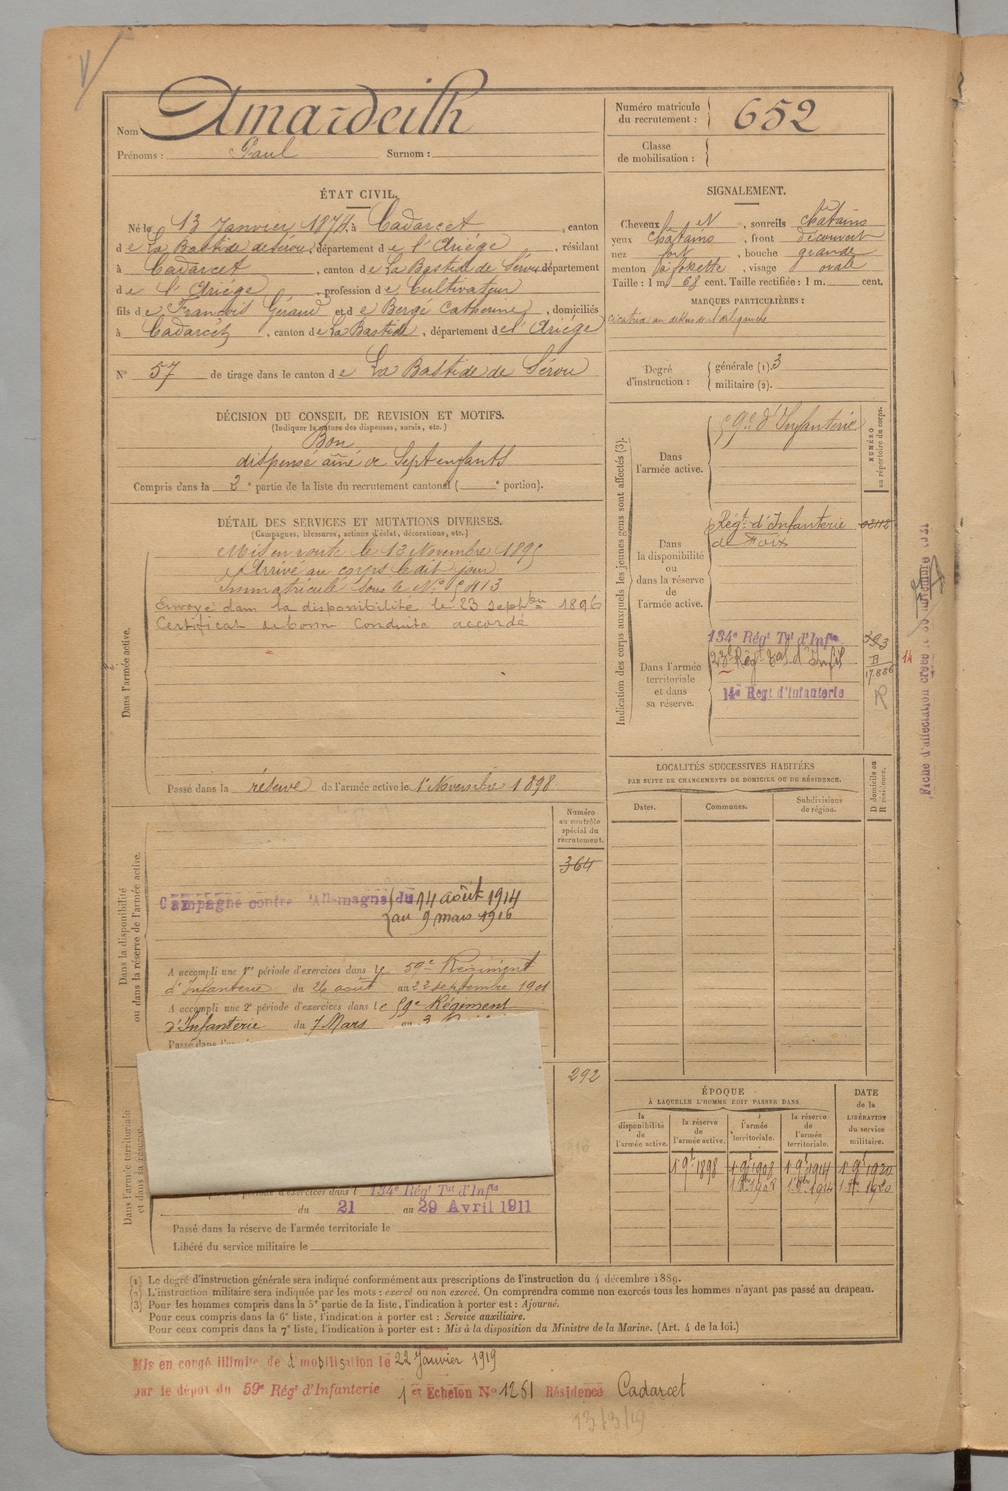 Nom Amardeilh
Prénoms : Paul Surnom :
Numéro matricule du recrutement : 652
Classe de mobilisation :
ÉTAT CIVIL.
Né le 13 Janvier 1874, à Cadarcet, canton
de La Bastide de Sérou, département de l'Ariège, résidant
à Cadarcet, canton de La Bastide de Sérou département
de l'Ariège, profession de Cultivateur
fils de François Géraud et de Bergé Catherine, domiciliés
à Cadarcet, canton de La Bastide, département de l'Ariège
N° 57 de tirage dans le canton de La Bastide de Sérou
SIGNALEMENT.
Cheveux , sourcils châtains
yeux châtains, front découvert
nez fort, bouche grande
menton à fossette, visage ovale
Taille : 1 m 68 cent. Taille rectifiée : 1 m. cent.
MARQUES PARTICULIÈRES :
cicatrice au dessus de l'œil gauche
Degré d'instruction : générale (1). 3
militaire (2).
DÉCISION DU CONSEIL DE REVISION ET MOTIFS.
(Indiquer la nature des dispenses, sursis, etc.)
Bon
dispensé aîné de Sept enfants
Compris dans la 2e partie de la liste du recrutement cantonal ( e portion).
DÉTAIL DES SERVICES ET MUTATIONS DIVERSES.
(Campagnes, blessures, actions d'éclat, décorations, etc.)
Dans l'armée active.
Mis en route le 13 Novembre 1895
Arrivé au corps le dit jour
Immatriculé sous le N°
Envoyé dans la disponibilité le 23 septbre 1896
Certificat de bonne Conduite accordé
Passé dans la réserve de l'armée active le 1er Novembre 1898
Indication des corps auxquels les jeunes gens sont affectés (3).
NUMÉRO au répertoire du corps.
Dans l'armée active.
59e d'Infanterie
Dans la disponibilité ou dans la réserve de l'armée active.
Régt d'Infanterie
de Foix
Dans l'armée territoriale et dans sa réserve.
134e Régt Tal d'Infie
14e Régt d'Infanterie
R
LOCALITÉS SUCCESSIVES HABITÉES
PAR SUITE DE CHANGEMENTS DE DOMICILE OU DE RÉSIDENCE.
Dates. Communes. Subdivisions de région. D domicile ou R résidence.
Dans la disponibilité ou dans la réserve de l'armée active.
Numéro au contrôle spécial du recrutement.
364
Campagne contre l'Allemagne du 14 août 1914
au 9 mars 1916
A accompli une 1re période d'exercices dans le 59e Régiment
d'Infanterie du 26 août au 22 septembre 1901
A accompli une 2e période d'exercices dans le 59e Régiment
d'Infanterie du 7 Mars au 3
Dans l'armée territoriale et dans sa réserve.
292
période d'exercices dans l 134e Régt Tal d'Infie
du 21 au 29 Avril 1911
Passé dans la réserve de l'armée territoriale le
Libéré du service militaire le
ÉPOQUE
À LAQUELLE L'HOMME DOIT PASSER DANS
la disponibilité de l'armée active. la réserve de l'armée active. l'armée territoriale. la réserve de l'armée territoriale.
DATE de la LIBÉRATION du service militaire.
(1) Le degré d'instruction générale sera indiqué conformément aux prescriptions de l'instruction du 4 décembre 1889.
(2) L'instruction militaire sera indiquée par les mots : exercé ou non exercé. On comprendra comme non exercés tous les hommes n'ayant pas passé au drapeau.
(3) Pour les hommes compris dans la 5e partie de la liste, l'indication à porter est : Ajourné.
Pour ceux compris dans la 6e liste, l'indication à porter est : Service auxiliaire.
Pour ceux compris dans la 7e liste, l'indication à porter est : Mis à la disposition du Ministre de la Marine. (Art. 4 de la loi.)
Mis en congé illimité de démobilisation le 22 Janvier 1919
par le dépôt du 59e Régt d'Infanterie 1er Echelon N° 1281 Résidence Cadarcet
13/3/19